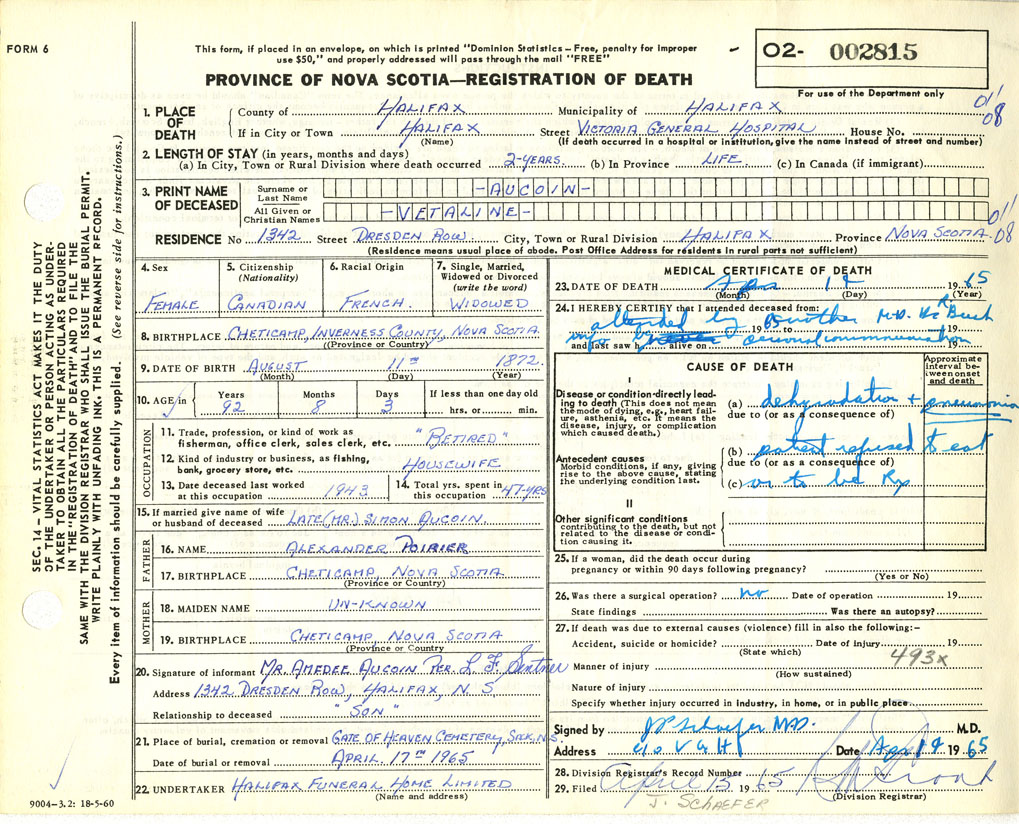 FORM 6
This form, if placed in an envelope, on which is printed "Dominion Statistics – Free, penalty for improper
use $50," and properly addressed will pass through the mail "FREE"
PROVINCE OF NOVA SCOTIA—REGISTRATION OF DEATH
02- 002815
For use of the Department only
01'
08
1. PLACE OF DEATH County of HALIFAX Municipality of HALIFAX
If in City or Town HALIFAX Street VICTORIA GENERAL HOSPITAL House No.
(Name) (If death occurred in a hospital or institution, give the name instead of street and number)
2. LENGTH OF STAY (in years, months and days)
(a) In City, Town or Rural Division where death occurred 2-YEARS. (b) In Province LIFE. (c) In Canada (if immigrant)
3. PRINT NAME OF DECEASED
Surname or Last Name -AUCOIN-
All Given or Christian Names -VETALINE-
01'
08
RESIDENCE No 1342 Street DRESDEN ROW. City, Town or Rural Division HALIFAX Province NOVA SCOTIA.
(Residence means usual place of abode. Post Office Address for residents in rural parts not sufficient)
4. Sex
FEMALE
5. Citizenship (Nationality)
CANADIAN
6. Racial Origin
FRENCH.
7. Single, Married, Widowed or Divorced (write the word)
WIDOWED
8. BIRTHPLACE CHETICAMP, INVERNESS COUNTY, NOVA SCOTIA
(Province or Country)
9. DATE OF BIRTH AUGUST 11TH 1872.
(Month) (Day) (Year)
10. AGE in Years 92 Months 8 Days 3 If less than one day old hrs. or min.
OCCUPATION
11. Trade, profession, or kind of work as
fisherman, office clerk, sales clerk, etc. "RETIRED"
12. Kind of industry or business, as fishing,
bank, grocery store, etc. HOUSEWIFE
13. Date deceased last worked
at this occupation 1943
14. Total yrs. spent in
this occupation 47-YRS
15. If married give name of wife
or husband of deceased LATE (MR.) SIMON AUCOIN.
FATHER
16. NAME ALEXANDER POIRIER
17. BIRTHPLACE CHETICAMP, NOVA SCOTIA
(Province or Country)
MOTHER
18. MAIDEN NAME UN-KNOWN
19. BIRTHPLACE CHETICAMP NOVA SCOTIA
(Province or Country)
20. Signature of informant MR. AMEDEE AUCOIN PER. L. F. Sentner
Address 1342 DRESDEN ROW, HALIFAX, N.S.
Relationship to deceased "SON"
21. Place of burial, cremation or removal GATE OF HEAVEN CEMETERY, SACK, N.S.
Date of burial or removal APRIL 17TH 1965
22. UNDERTAKER HALIFAX FUNERAL HOME LIMITED
(Name and address)
MEDICAL CERTIFICATE OF DEATH
23. DATE OF DEATH Apr 14 19 65
(Month) (Day) (Year)
24. I HEREBY CERTIFY that I attended deceased from:
attended by another M.D. Dr R Bush
19 65 to 19
and last saw h alive on 19
info by personal communication
CAUSE OF DEATH
Approximate interval between onset and death
I
Disease or condition directly leading to death (This does not mean the mode of dying, e.g., heart failure, asthenia, etc. It means the disease, injury, or complication which caused death.)
(a) dehydration + pneumonia
due to (or as a consequence of)
Antecedent causes
Morbid conditions, if any, giving rise to the above cause, stating the underlying condition last.
(b) patient refused to eat
due to (or as a consequence of)
(c) or to be Rx
II
Other significant conditions contributing to the death, but not related to the disease or condition causing it.
25. If a woman, did the death occur during
pregnancy or within 90 days following pregnancy?
(Yes or No)
26. Was there a surgical operation? no Date of operation 19
State findings Was there an autopsy?
27. If death was due to external causes (violence) fill in also the following:-
Accident, suicide or homicide? Date of injury 19
(State which)
493x
Manner of injury
(How sustained)
Nature of injury
Specify whether injury occurred in industry, in home, or in public place
Signed by JP Schaefer M.D. M.D.
Address Date Apr 14 19 65
28. Division Registrar's Record Number
29. Filed April 15 19 65
(Division Registrar)
J. SCHAEFER
SEC. 14 – VITAL STATISTICS ACT MAKES IT THE DUTY
OF THE UNDERTAKER OR PERSON ACTING AS UNDER-
TAKER TO OBTAIN ALL THE PARTICULARS REQUIRED
IN THE "REGISTRATION OF DEATH" AND TO FILE THE
SAME WITH THE DIVISION REGISTRAR WHO SHALL ISSUE THE BURIAL PERMIT.
WRITE PLAINLY WITH UNFADING INK. THIS IS A PERMANENT RECORD.
Every item of information should be carefully supplied. (See reverse side for instructions.)
9004–3.2: 18-5-60